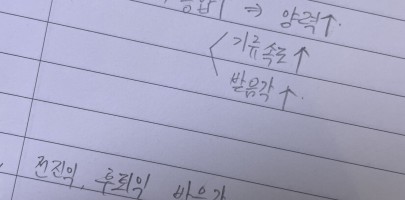 ⇒ 양력↑.
기류속도↑
받음각↑.
전진익, 후퇴익